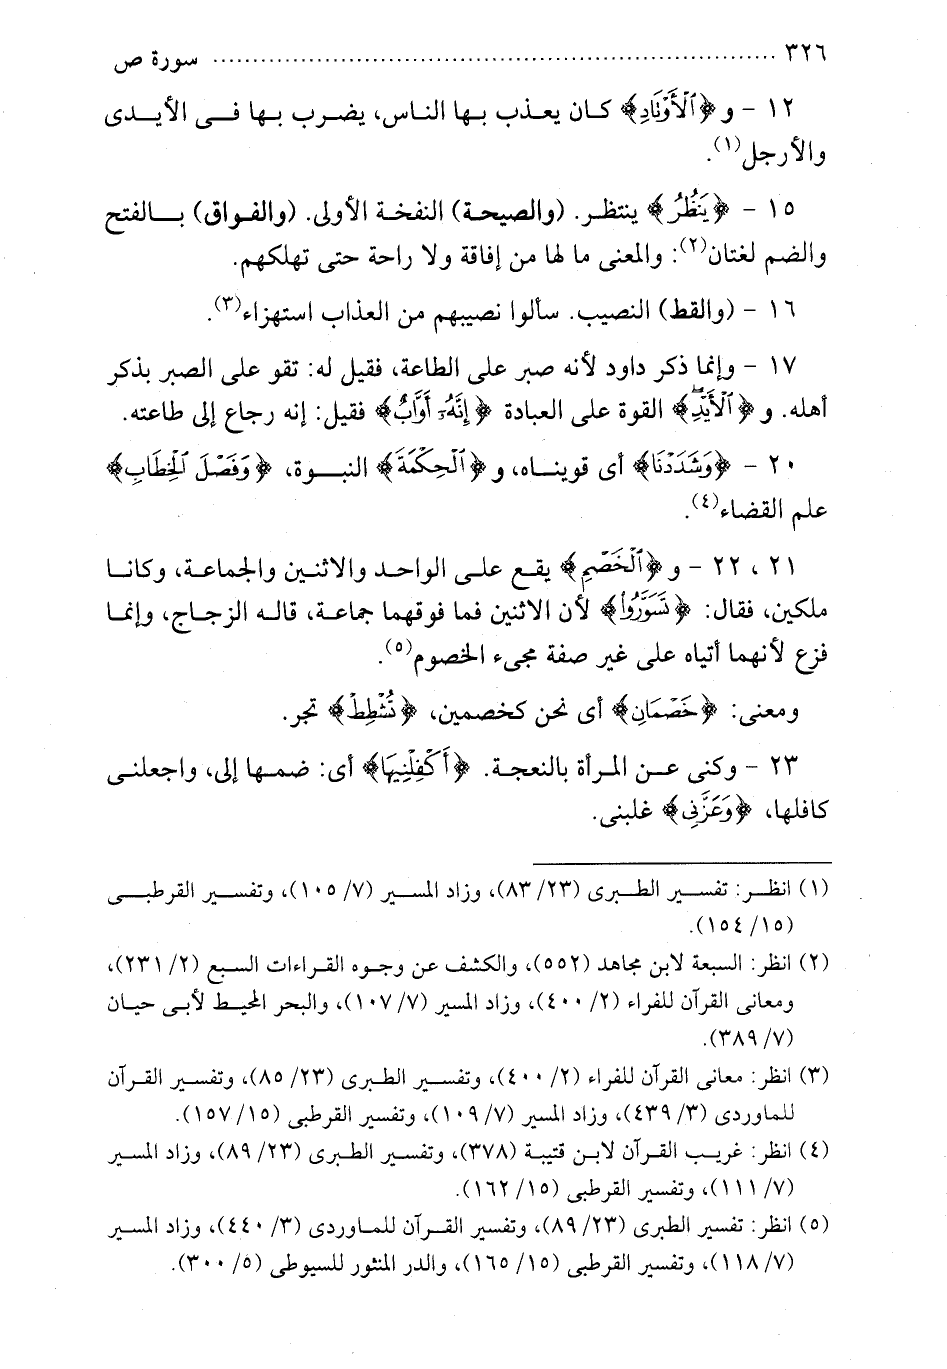 ٣٢٦ ........................................................ سورة ص
١٢ - و ﴿ٱلْأَوْتَادِ﴾ كان يعذب بها الناس، يضرب بها فى الأيدى
والأرجل(١).
١٥ - ﴿يَنظُرُ﴾ ينتظر. (والصيحة) النفخة الأولى. (والفواق) بالفتح
والضم لغتان(٢): والمعنى ما لها من إفاقة ولا راحة حتى تهلكهم.
١٦ - (والقط) النصيب. سألوا نصيبهم من العذاب استهزاء(٣).
١٧ - وإنما ذكر داود لأنه صبر على الطاعة، فقيل له: تقو على الصبر بذكر
أهله. و ﴿ٱلْأَيْدِ﴾ القوة على العبادة ﴿إِنَّهُۥٓ أَوَّابٌ﴾ فقيل: إنه رجاع إلى طاعته.
٢٠ - ﴿وَشَدَدْنَا﴾ أى قويناه، و ﴿ٱلْحِكْمَةَ﴾ النبوة، ﴿وَفَصْلَ ٱلْخِطَابِ﴾
علم القضاء(٤).
٢١ ، ٢٢ - و ﴿ٱلْخَصْمِ﴾ يقع على الواحد والاثنين والجماعة، وكانا
ملكين، فقال: ﴿تَسَوَّرُوا۟﴾ لأن الاثنين فما فوقهما جماعة، قاله الزجاج، وإنما
فزع لأنهما أتياه على غير صفة مجىء الخصوم(٥).
ومعنى: ﴿خَصْمَانِ﴾ أى نحن كخصمين، ﴿تُشْطِطْ﴾ تجر.
٢٣ - وكنى عن المرأة بالنعجة. ﴿أَكْفِلْنِيهَا﴾ أى: ضمها إلى، واجعلنى
كافلها، ﴿وَعَزَّنِى﴾ غلبنى.
(١) انظر: تفسير الطبرى (٢٣/ ٨٣)، وزاد المسير (٧/ ١٠٥)، وتفسير القرطبى
(١٥/ ١٥٤).
(٢) انظر: السبعة لابن مجاهد (٥٥٢)، والكشف عن وجوه القراءات السبع (٢/ ٢٣١)،
ومعانى القرآن للفراء (٢/ ٤٠٠)، وزاد المسير (٧/ ١٠٧)، والبحر المحيط لأبى حيان
(٧/ ٣٨٩).
(٣) انظر: معانى القرآن للفراء (٢/ ٤٠٠)، وتفسير الطبرى (٢٣/ ٨٥)، وتفسير القرآن
للماوردى (٣/ ٤٣٩)، وزاد المسير (٧/ ١٠٩)، وتفسير القرطبى (١٥/ ١٥٧).
(٤) انظر: غريب القرآن لابن قتيبة (٣٧٨)، وتفسير الطبرى (٢٣/ ٨٩)، وزاد المسير
(٧/ ١١١)، وتفسير القرطبى (١٥/ ١٦٢).
(٥) انظر: تفسير الطبرى (٢٣/ ٨٩)، وتفسير القرآن للماوردى (٣/ ٤٤٠)، وزاد المسير
(٧/ ١١٨)، وتفسير القرطبى (١٥/ ١٦٥)، والدر المنثور للسيوطى (٥/ ٣٠٠).